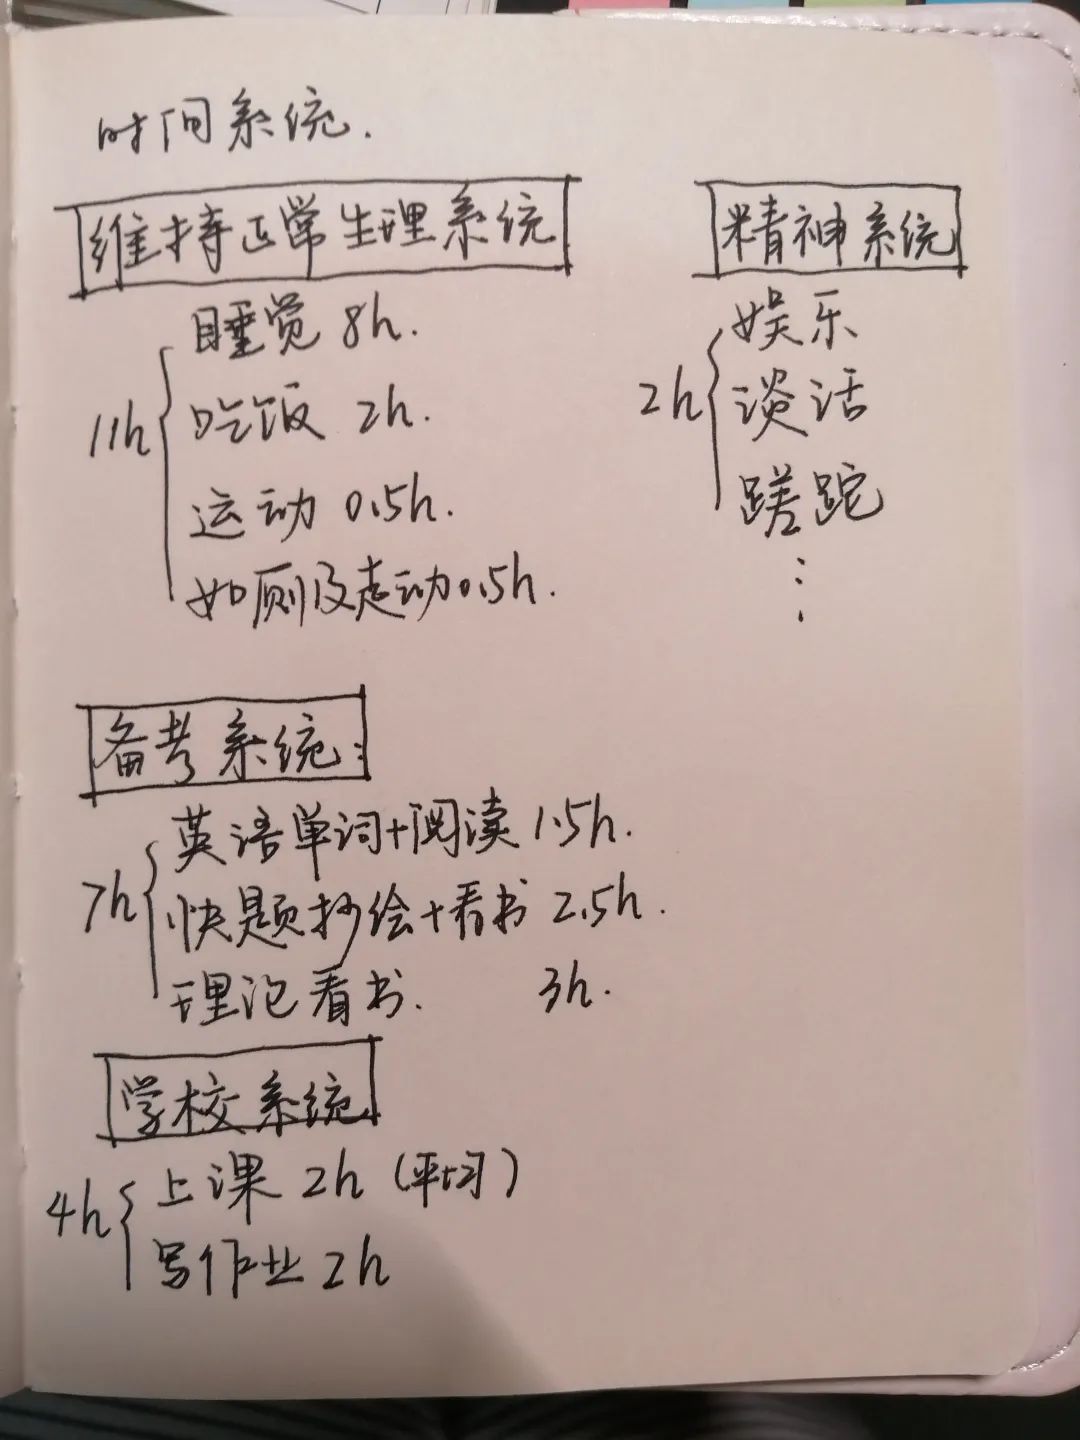 时间系统.
维持正常生理系统
睡觉 8h.
吃饭 2h.
运动 0.5h.
如厕及走动0.5h.
11h
精神系统
娱乐
谈话
蹉跎
⋮
2h
备考系统:
英语单词+阅读 1.5h.
快题抄绘+看书 2.5h.
理论看书. 3h.
7h
学校系统
上课 2h (平均)
写作业 2h
4h